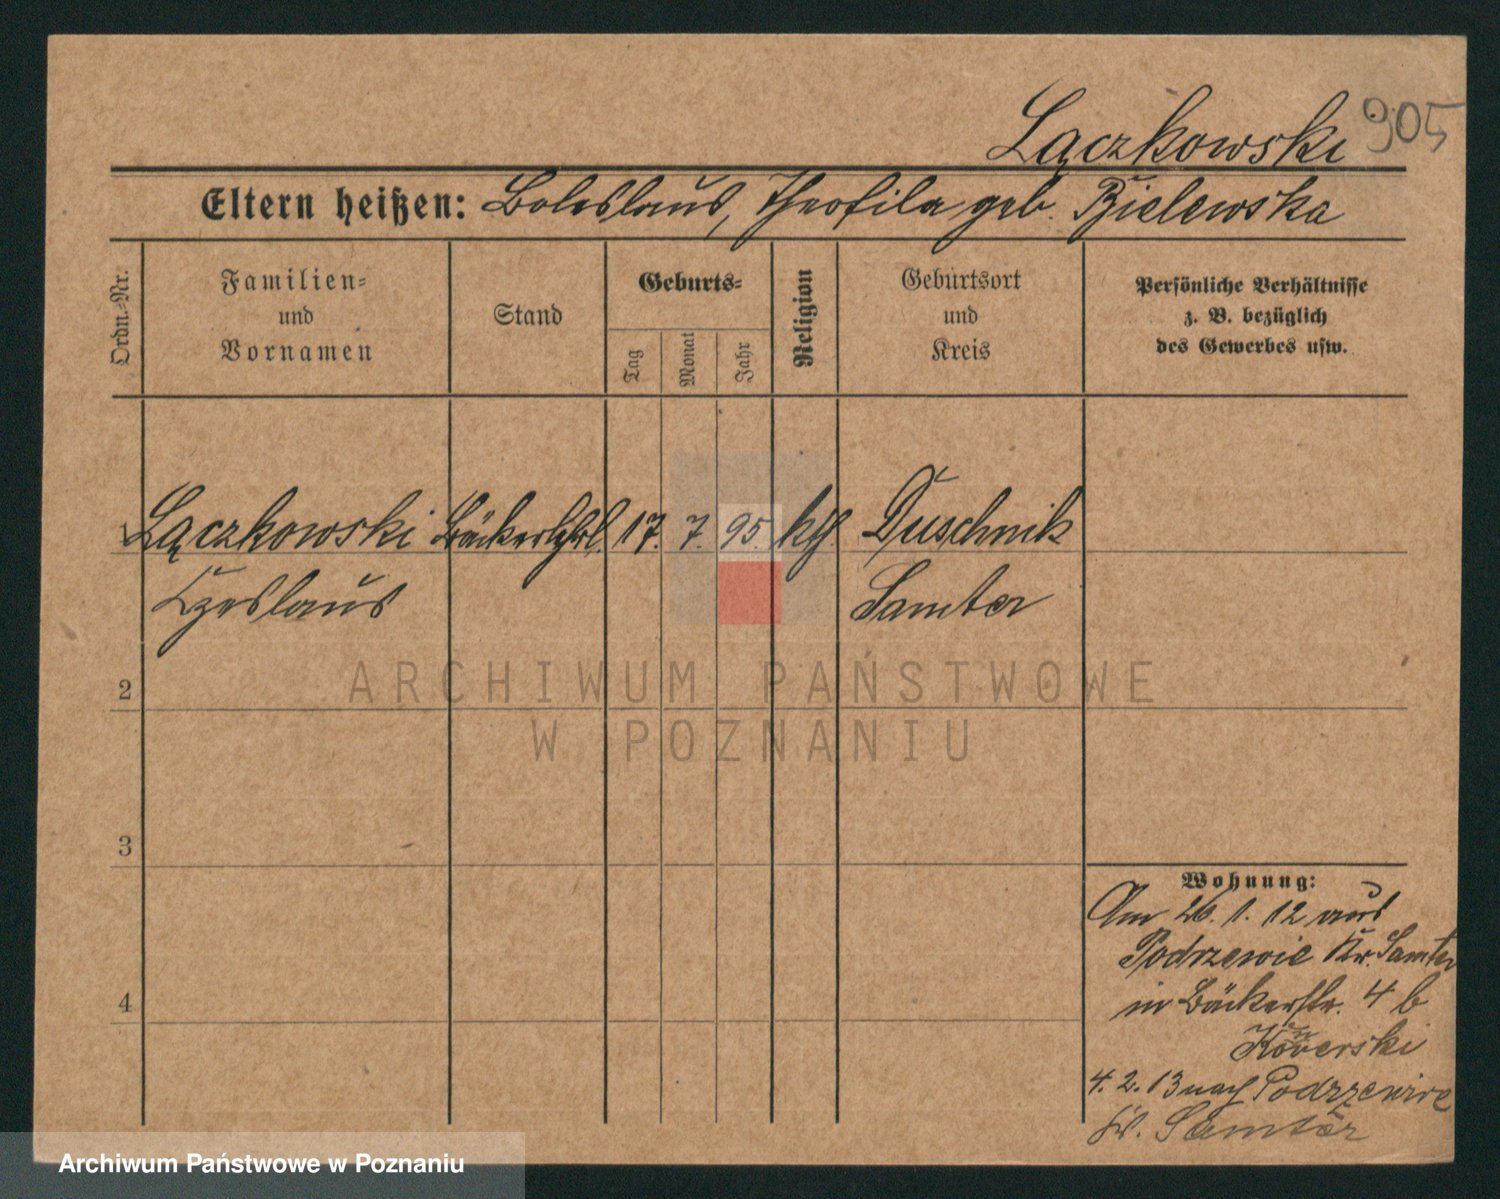 Łączkowski 905
Eltern heißen: Boleslaus, Theofila geb. Bielewska
Ordn.-Nr.
Familien-
und
Vornamen
Stand
Geburts-
Tag
Monat
Jahr
Religion
Geburtsort
und
Kreis
Persönliche Verhältnisse
z. B. bezüglich
des Gewerbes usw.
1 Łączkowski Bäckerlehrl. 17. 7. 95. kth Duschnik
Czeslaus Samter
2
3
4
ARCHIWUM PAŃSTWOWE
W POZNANIU
Wohnung:
Am 26. 1. 12 aus
Podrzewie Kr. Samter
in Bäckerstr. 4 b
4. 2. 13 nach Podrzewie
Kr. Samter
Archiwum Państwowe w Poznaniu